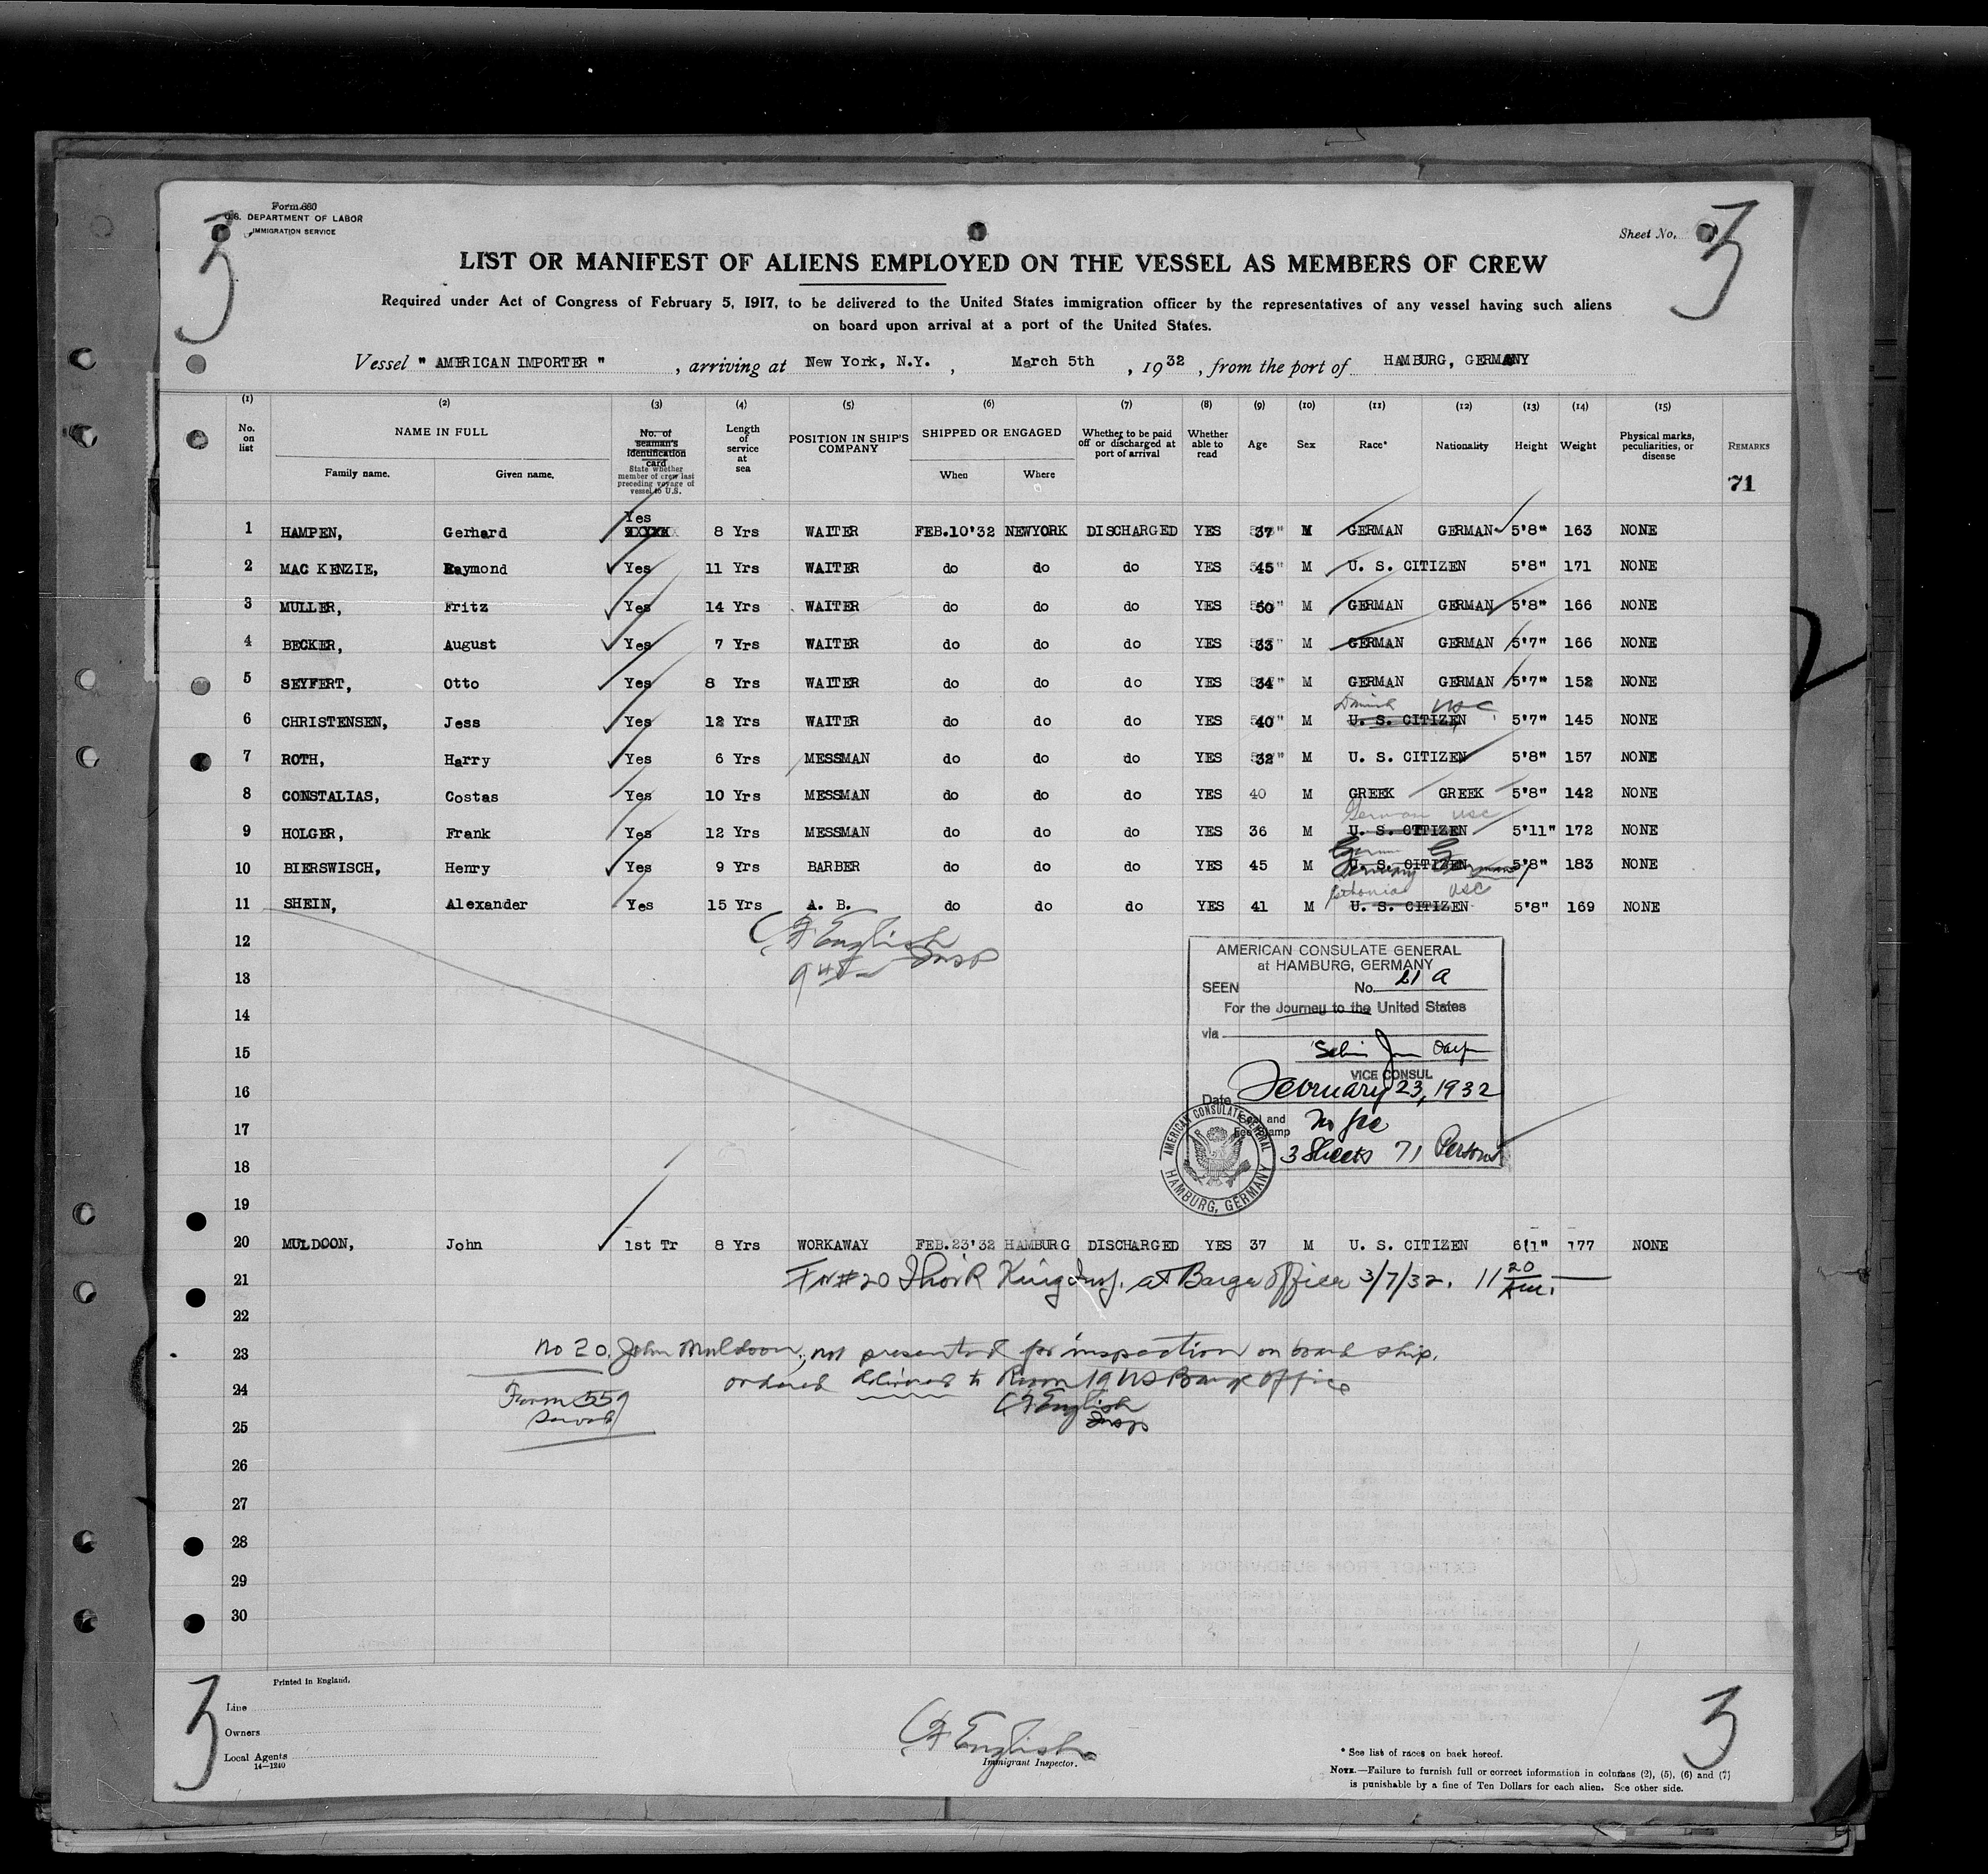 Form 680
U.S. DEPARTMENT OF LABOR
IMMIGRATION SERVICE
3
Sheet No. 3
LIST OR MANIFEST OF ALIENS EMPLOYED ON THE VESSEL AS MEMBERS OF CREW
Required under Act of Congress of February 5, 1917, to be delivered to the United States immigration officer by the representatives of any vessel having such aliens
on board upon arrival at a port of the United States.
Vessel " AMERICAN IMPORTER " , arriving at New York, N.Y. , March 5th , 1932 , from the port of HAMBURG, GERMANY
(1) (2) (3) (4) (5) (6) (7) (8) (9) (10) (11) (12) (13) (14) (15)
No. on list NAME IN FULL Family name. Given name. No. of seaman's identification card State whether member of crew last preceding voyage of vessel to U.S. Length of service at sea POSITION IN SHIP'S COMPANY SHIPPED OR ENGAGED When Where Whether to be paid off or discharged at port of arrival Whether able to read Age Sex Race* Nationality Height Weight Physical marks, peculiarities, or disease REMARKS
71
1 HAMPEN, Gerhard Yes 8 Yrs WAITER FEB.10'32 NEWYORK DISCHARGED YES 37 M GERMAN GERMAN 5'8" 163 NONE
2 MAC KENZIE, Raymond Yes 11 Yrs WAITER do do do YES 45 M U. S. CITIZEN 5'8" 171 NONE
3 MULLER, Fritz Yes 14 Yrs WAITER do do do YES 50 M GERMAN GERMAN 5'8" 166 NONE
4 BECKER, August Yes 7 Yrs WAITER do do do YES 33 M GERMAN GERMAN 5'7" 166 NONE
5 SEYFERT, Otto Yes 8 Yrs WAITER do do do YES 34 M GERMAN GERMAN 5'7" 152 NONE
Danish USC
6 CHRISTENSEN, Jess Yes 12 Yrs WAITER do do do YES 40 M U. S. CITIZEN 5'7" 145 NONE
7 ROTH, Harry Yes 6 Yrs MESSMAN do do do YES 32 M U. S. CITIZEN 5'8" 157 NONE
8 CONSTALIAS, Costas Yes 10 Yrs MESSMAN do do do YES 40 M GREEK GREEK 5'8" 142 NONE
German USC
9 HOLGER, Frank Yes 12 Yrs MESSMAN do do do YES 36 M U. S. CITIZEN 5'11" 172 NONE
10 BIERSWISCH, Henry Yes 9 Yrs BARBER do do do YES 45 M U. S. CITIZEN 5'8" 183 NONE
Germany German
USC
11 SHEIN, Alexander Yes 15 Yrs A. B. do do do YES 41 M U. S. CITIZEN 5'8" 169 NONE
12
C F English
Insp
13
14
15
16
17
18
19
AMERICAN CONSULATE GENERAL
at HAMBURG, GERMANY
SEEN No. 21 A
For the Journey to the United States
via
VICE CONSUL
Date February 23, 1932
Seal and Fee Stamp No fee
3 Sheets 71 Persons
AMERICAN CONSULATE GENERAL HAMBURG, GERMANY
20 MULDOON, John 1st Tr 8 Yrs WORKAWAY FEB.23'32 HAMBURG DISCHARGED YES 37 M U. S. CITIZEN 6'1" 177 NONE
21 #20 at Barge Office 3/7/32. 11 20 AM.
22
23 No 20. John Muldoon, not presented for inspection on board ship.
24 ordered to Room 19 US Barge Office
Form 559
served
C F English
Insp
25
26
27
28
29
30
Printed in England.
Line
Owners
Local Agents
14—1240
3
C F English
Immigrant Inspector.
3
* See list of races on back hereof.
NOTE.—Failure to furnish full or correct information in columns (2), (5), (6) and (7)
is punishable by a fine of Ten Dollars for each alien. See other side.
2